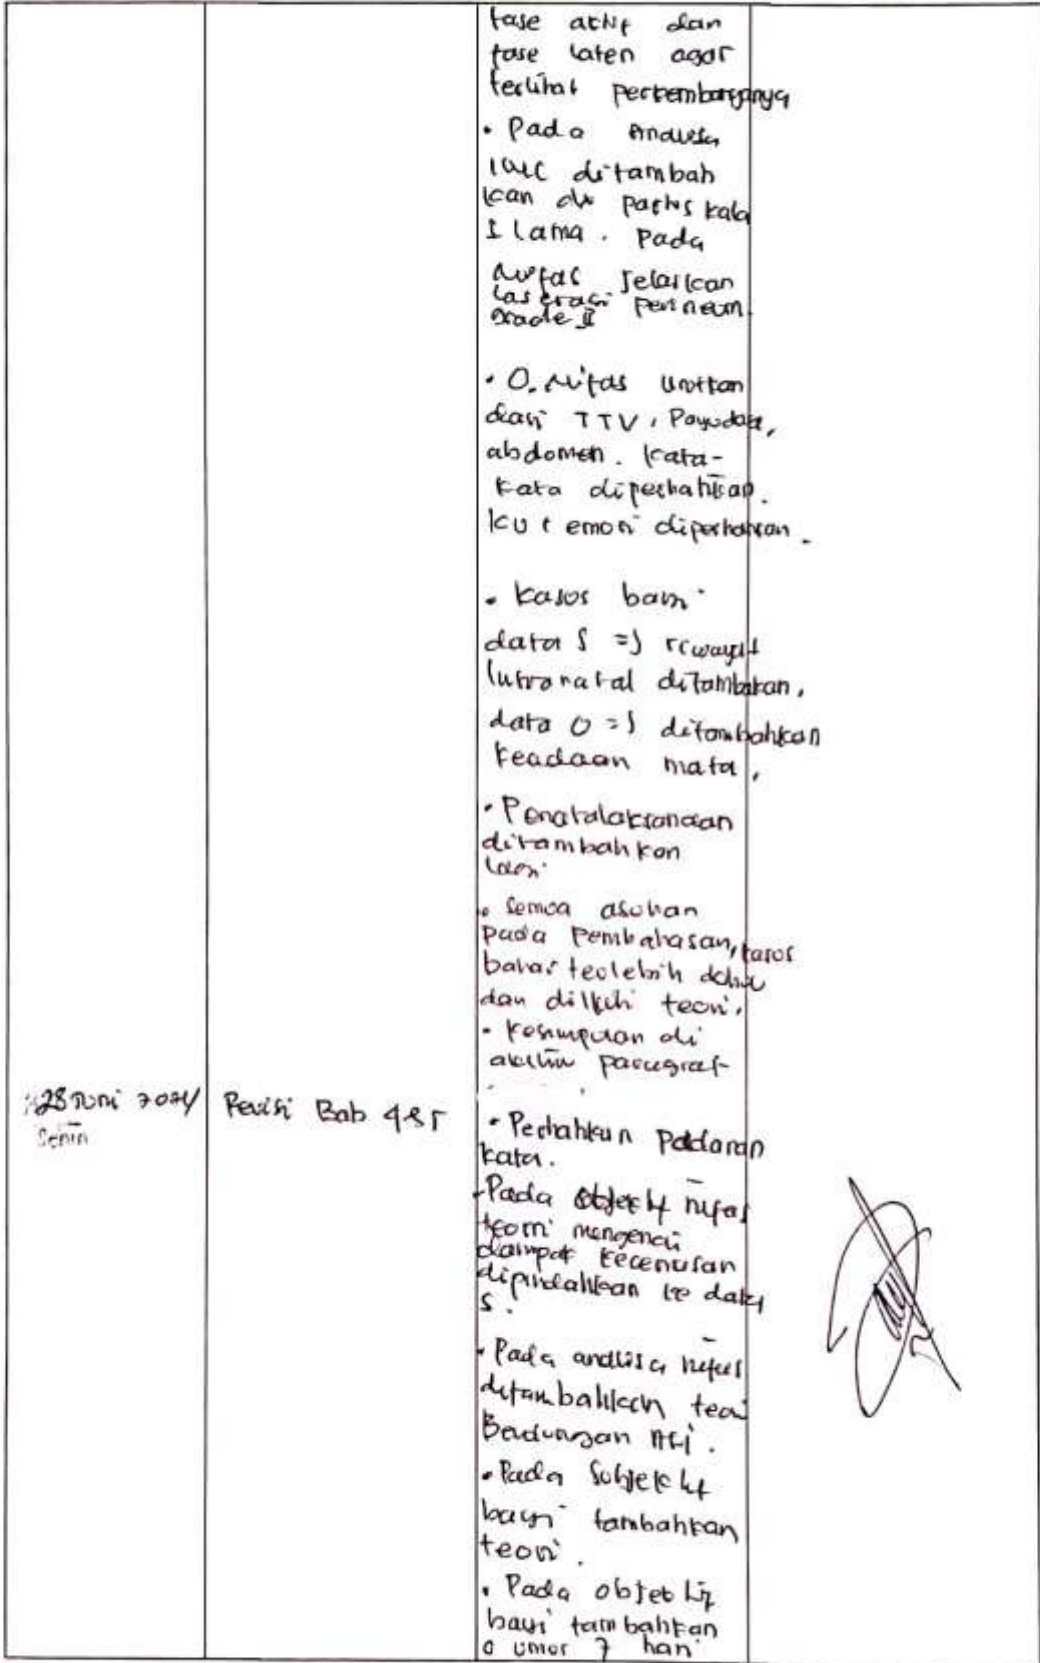 fase aktif dan
fase laten agar
terlihat perkembanganya
• Pada Analisa
ditambah
kan di partus kala
I lama. Pada
Nifas jelaskan
laserasi perineum
Grade II
• O. Nifas urutkan
dari TTV, Payudara,
abdomen. Kata-
kata diperbahikan.
KU & emosi diperhatikan.
• Kasus bayi
data S => riwayat
Intranatal ditambakan,
data O => ditambahkan
keadaan mata,
• Penatalaksanaan
ditambahkan
lagi
• Semua asuhan
pada Pembahasan, kasus
bahas terlebih dahulu
dan diikuti teori.
• Kesimpulan di
akhir paragraf
28 Juni 2024
Senin
Revisi Bab 4 & 5
• Perbahikan paddanan
kata.
- Pada objektif nifas
teori mengenai
dampak kecemasan
dipindahkan ke data
S.
• Pada analisa nifas
ditambahkan teori
Bendungan ASI.
• Pada Subjektif
bayi tambahkan
teori.
• Pada objektif
bayi tambahkan
O umur 7 hari